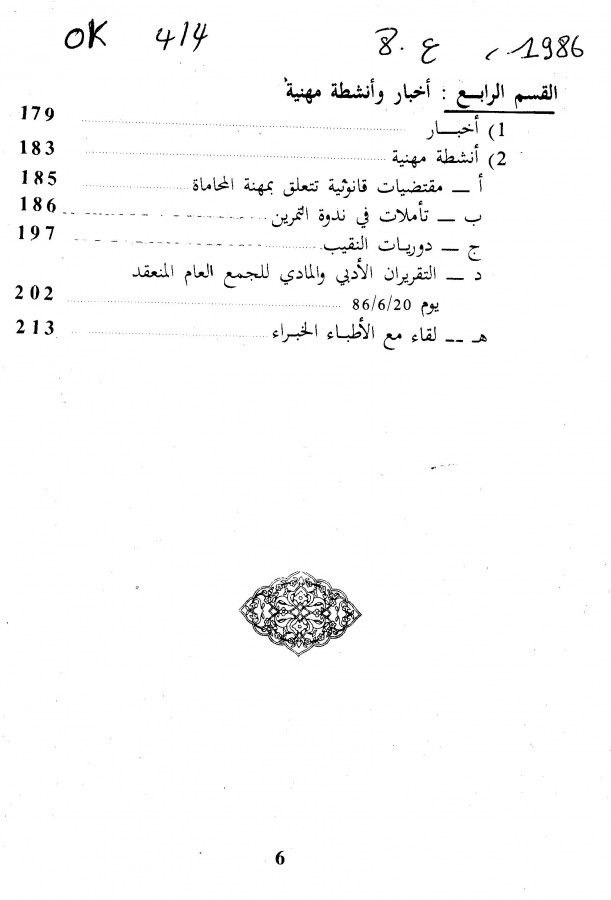 OK 4/4 8. ع ، 1986
القسم الرابع : أخبار وأنشطة مهنية
1) أخبار 179
2) أنشطة مهنية 183
أ ــ مقتضيات قانونية تتعلق بمهنة المحاماة 185
ب ــ تأملات في ندوة التمرين 186
ج ــ دوريات النقيب 197
د ــ التقريران الأدبي والمادي للجمع العام المنعقد
يوم 86/6/20 202
هـ ــ لقاء مع الأطباء الخبراء 213
6